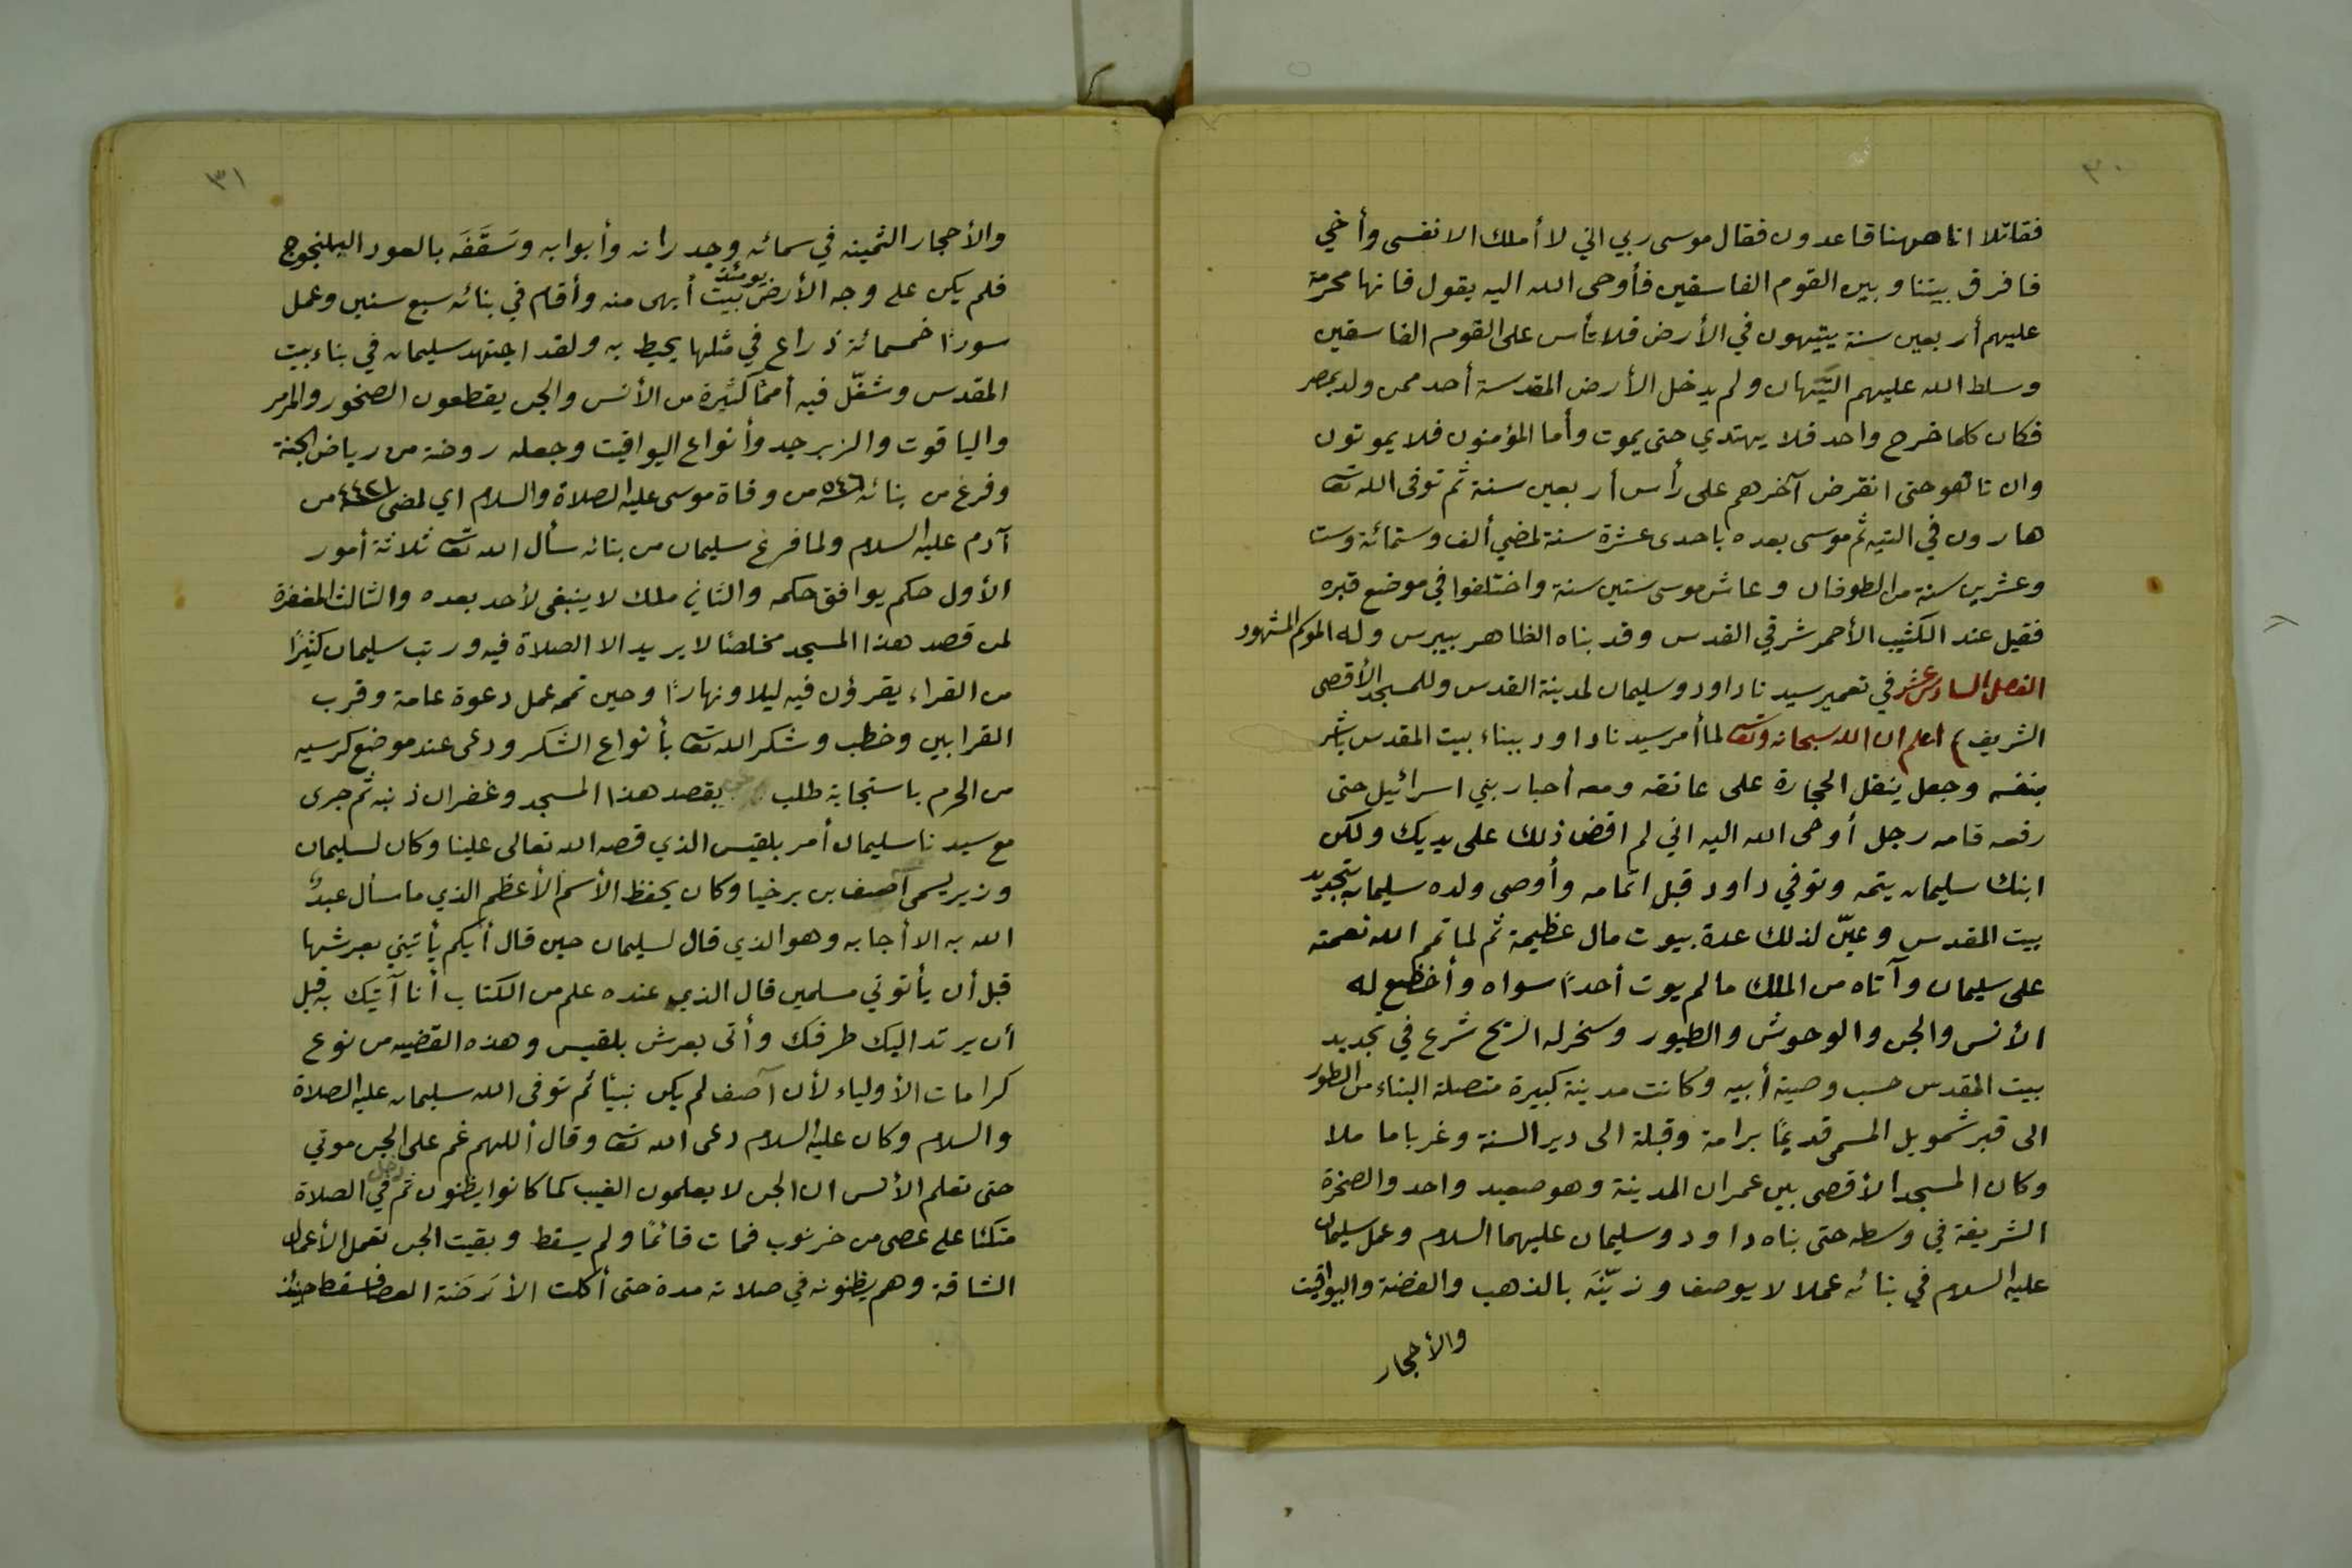 ٣٠
فقاتلا انا ههنا قاعدون فقال موسى ربي اني لا أملك الا نفسى وأخي
فافرق بيننا وبين القوم الفاسقين فأوحى الله اليه يقول فانها محرمة
عليهم أربعين سنة يتيهون في الأرض فلا تأس على القوم الفاسقين
وسلط الله عليهم التيهان ولم يدخل الأرض المقدسة أحد ممن ولد بمصر
فكان كلما خرج واحد فلا يهتدي حتى يموت وأما المؤمنون فلا يموتون
وان تاهو حتى انقرض آخرهم على رأس أربعين سنة ثم توفى الله تعا
هارون في التيه ثم موسى بعده باحدى عشرة سنة لمضي ألف وستمائة وست
وعشرين سنة من الطوفان وعاش موسى ستين سنة واختلفوا في موضع قبره
فقيل عند الكثيب الأحمر شرقي القدس وقد بناه الظاهر بيبرس وله الموكم المشهود
الفصل السادس عشر في تعمير سيدنا داود وسليمان لمدينة القدس وللمسجد الأقصى
الشريف) اعلم ان الله سبحانه وتعا لما أمر سيدنا داود ببناء بيت المقدس باشر
بنفسه وجعل ينقل الحجارة على عاتقه ومعه أحبار بني اسرائيل حتى
رفعه قامه رجل أوحى الله اليه اني لم اقض ذلك على يديك ولكن
ابنك سليمان يتمه وتوفي داود قبل اتمامه وأوصى ولده سليمان بتجديد
بيت المقدس وعيّن لذلك عدة بيوت مال عظيمة ثم لما تمم الله نعمته
على سليمان وآتاه من الملك ما لم يوت أحداً سواه وأخظع له
الأنس والجن والوحوش والطيور وسخر له الريح شرع في تجديد
بيت المقدس حسب وصية أبيه وكانت مدينة كبيرة متصلة البناء من الطور
الى قبر شمويل المسمى قديمًا برامة وقبلة الى دير السنة وغربا ما ملا
وكان المسجد الأقصى بين عمران المدينة وهو صعيد واحد والصخرة
الشريفة في وسطه حتى بناه داود وسليمان عليهما السلام وعمل سليمان
عليه السلام في بنائه عملا لا يوصف وزيّنَه بالذهب والفضة واليواقيت
والأحجار
٣١
والأحجار الثمينه في سمائه وجدرانه وأبوابه وسَقَّفَه بالعود اليلنجوج
فلم يكن على وجه الأرض يومئذ بيت أبهى منه وأقام في بنائه سبع سنين وعمل
سورًا خمسمائة ذراع في مثلها يحيط به ولقد اجتهد سليمان في بناء بيت
المقدس وشغّل فيه أممًا كثيرة من الأنس والجن يقطعون الصخور والمرمر
والياقوت والزبرجد وأنواع اليواقيت وجعله روضة من رياض الجنة
وفرغ من بنائه ٥٤٦ من وفاة موسى عليه الصلاة والسلام اي لمضى ٤٤٢١ من
آدم عليه السلام ولما فرغ سليمان من بنائه سأل الله تعا ثلاثة أمور
الأول حكم يوافق حكمه والثاني ملك لا ينبغى لأحد بعده والثالث المغفرة
لمن قصد هذا المسجد مخلصًا لا يريد الا الصلاة فيه ورتب سليمان كثيرًا
من القراء يقرؤن فيه ليلا ونهارًا وحين تممه عمل دعوة عامة وقرب
القرابين وخطب وشكر الله تعا بأنواع الشكر ودعى عند موضع كرسيه
من الحرم باستجابة طلب يقصد هذا المسجد وغفران ذنبه ثم جرى
مع سيدنا سليمان أمر بلقيس الذي قصه الله تعالى علينا وكان لسليمان
وزير يسمى آصف بن برخيا وكان يحفظ الأسم الأعظم الذي ما سأل عبدٌ
الله به الا أجابه وهو الذي قال لسليمان حين قال أيكم يأتيني بعرشها
قبل أن يأتوني مسلمين قال الذي عنده علم من الكتاب أنا آتيك به قبل
أن يرتد اليك طرفك وأتى بعرش بلقيس وهذه القضيه من نوع
كرامات الأولياء لأن آصف لم يكن نبيًا ثم توفى الله سليمان عليه الصلاة
والسلام وكان عليه السلام دعى الله تعا وقال أللهم غم على الجن موتي
حتى تعلم الأنس ان الجن لا يعلمون الغيب كما كانوا يظنون ثم دخل في الصلاة
متكئا على عصى من خرنوب فمات قائمًا ولم يسقط وبقيت الجن تعمل الأعمال
الشاقة وهم يظنونه في صلاته مدة حتى أكلت الأرَضَة العصا فسقط حينئذ